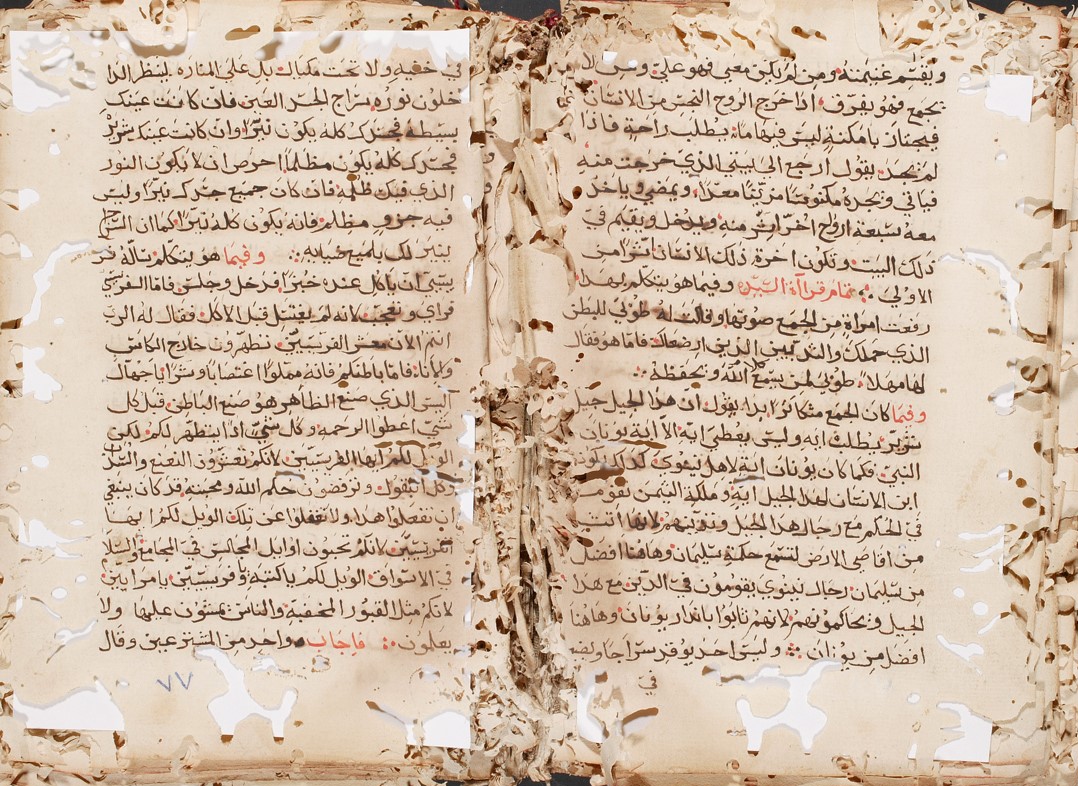 ويقسم غنيمته ومن لم يكن معي فهو علي ومن لا
يجمع فهو يفرق اذا خرج الروح النجس من الانسان
فيجتاز بامكنة ليس فيها ما يطلب راحة فاذا
لم يجد يقول ارجع الى بيتي الذي خرجت منه
فياتي ويجده مكنوسا مزينا معدا ويمضي وياخذ
معه سبعة ارواح اخر اشر منه ويدخل ويقيم في
ذلك البيت وتكون اخرة ذلك الانسان اشرا من
الاولى تمام قراآة السيدة وفيما هو يتكلم بهدا
رفعت امراة من الجمع صوتها وقالت له طوبى للبطن
الذي حملك والثديين الذين ارضعاك فاما هو فقال
لها مهلا طوبى لمن يسمع كلام الله ويحفظه
وفيما كان الجمع متكاثرا بدا يقول ان هذا الجيل جيل
شرير يطلب ايه وليس يعطى اية الا اية يونان
النبي فكما كان يونان اية لاهل نينوى كدلك يكون
ابن الانسان لهدا الجيل اية وملكة التيمن تقوم
في الحكم مع رجال هدا الجيل وتدينهم لانها اتت
من اقاصي الارض لتسمع حكمة سليمان وهاهنا افضل
من سليمان رجال نينوى يقومون في الدين مع هدا
الجيل ويحاكمونهم لانهم تابوا بانذار يونان وهاهنا
افضل من يونان وليس احد يوقد سراجا ويضعه
في
في خفيه ولا تحت مكيال بل على المناره لينظر الدا
خلون نوره سراج الجسد العين فان كانت عينك
بسيطه فجسدك كله يكون نيرا وان كانت عينك شريره
فجسدك كله يكون مظلما احرص ان لا يكون النور
الذي فيك ظلمه فان كان جميع جسدك نيرا وليس
فيه جزو مظلم فانه يكون كله نيرا كما ان السراج
ينير لك بلميع ضيائه وفيما هو يتكلم ساله فر
يسي ان ياكل عنده خبزا فدخل وجلس فاما الفريسي
فراى وتعجب لانه لم يغتسل قبل الاكل فقال له الرب
انتم الان معشر الفريسيين تطهرون خارج الكاس
والاناء فاما باطنكم فانه مملوا اغتصابا وشرا يا جهال
اليس الذي صنع الظاهر هو صنع الباطن قبل كل
شي اعطوا الرحمه وكل شي اذا يتطهر لكم لكن
الويل لكم ايها الفريسيين لانكم تعشرون النعنع والسداب
وكل البقول وترفضون حكم الله ومحبته قد كان ينبغي
ان تفعلوا هدا ولا تغفلوا عن تلك الويل لكم ايها
الفريسيين لانكم تحبون اوايل المجالس في المجامع والسلام
في الاسواق الويل لكم يا كتبة وفريسيين يا مرايين
لانكم مثل القبور المخفية والناس يمشون عليها ولا
يعلمون فاجاب واحد من المتشرعين وقال
٧٧